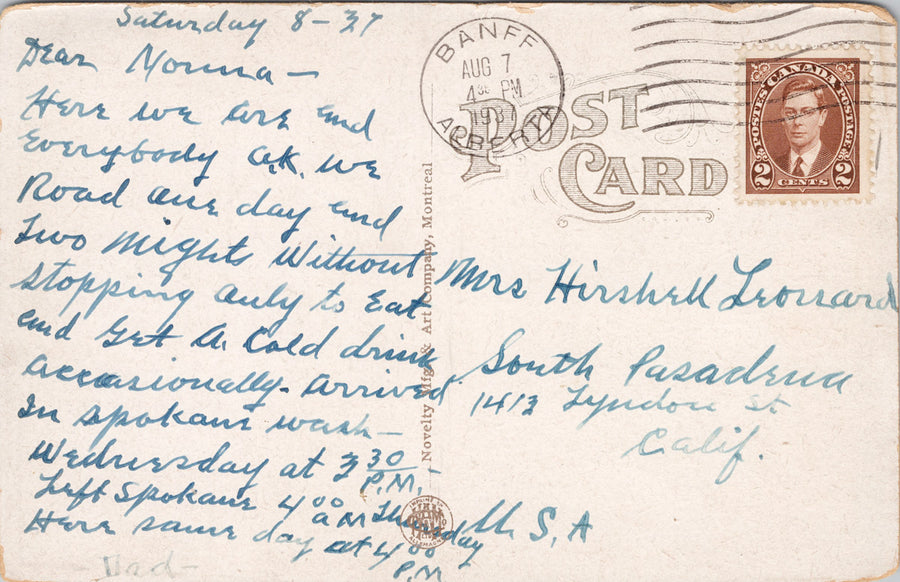 Saturday 8-37
Dear Norma -
Here we are and
everybody O.K. we
Road one day and
two Nights Without
stopping only to Eat
and Get A Cold drink
accasionally. arrived
In Spokane wash -
Wednesday at 3 30 P.M. -
Left Spokane 4 00 AM Thursday
Here same day at 4 00 P.M
- Dad -
BANFF
AUG 7
4 PM
1937
ALBERTA
POST
CARD
POSTES CANADA POSTAGE
2 CENTS 2
Novelty Mfg. & Art Company, Montreal
Mrs Hirshell Leonard
South Pasadena
1413 Lyndon St.
Calif.
U.S.A